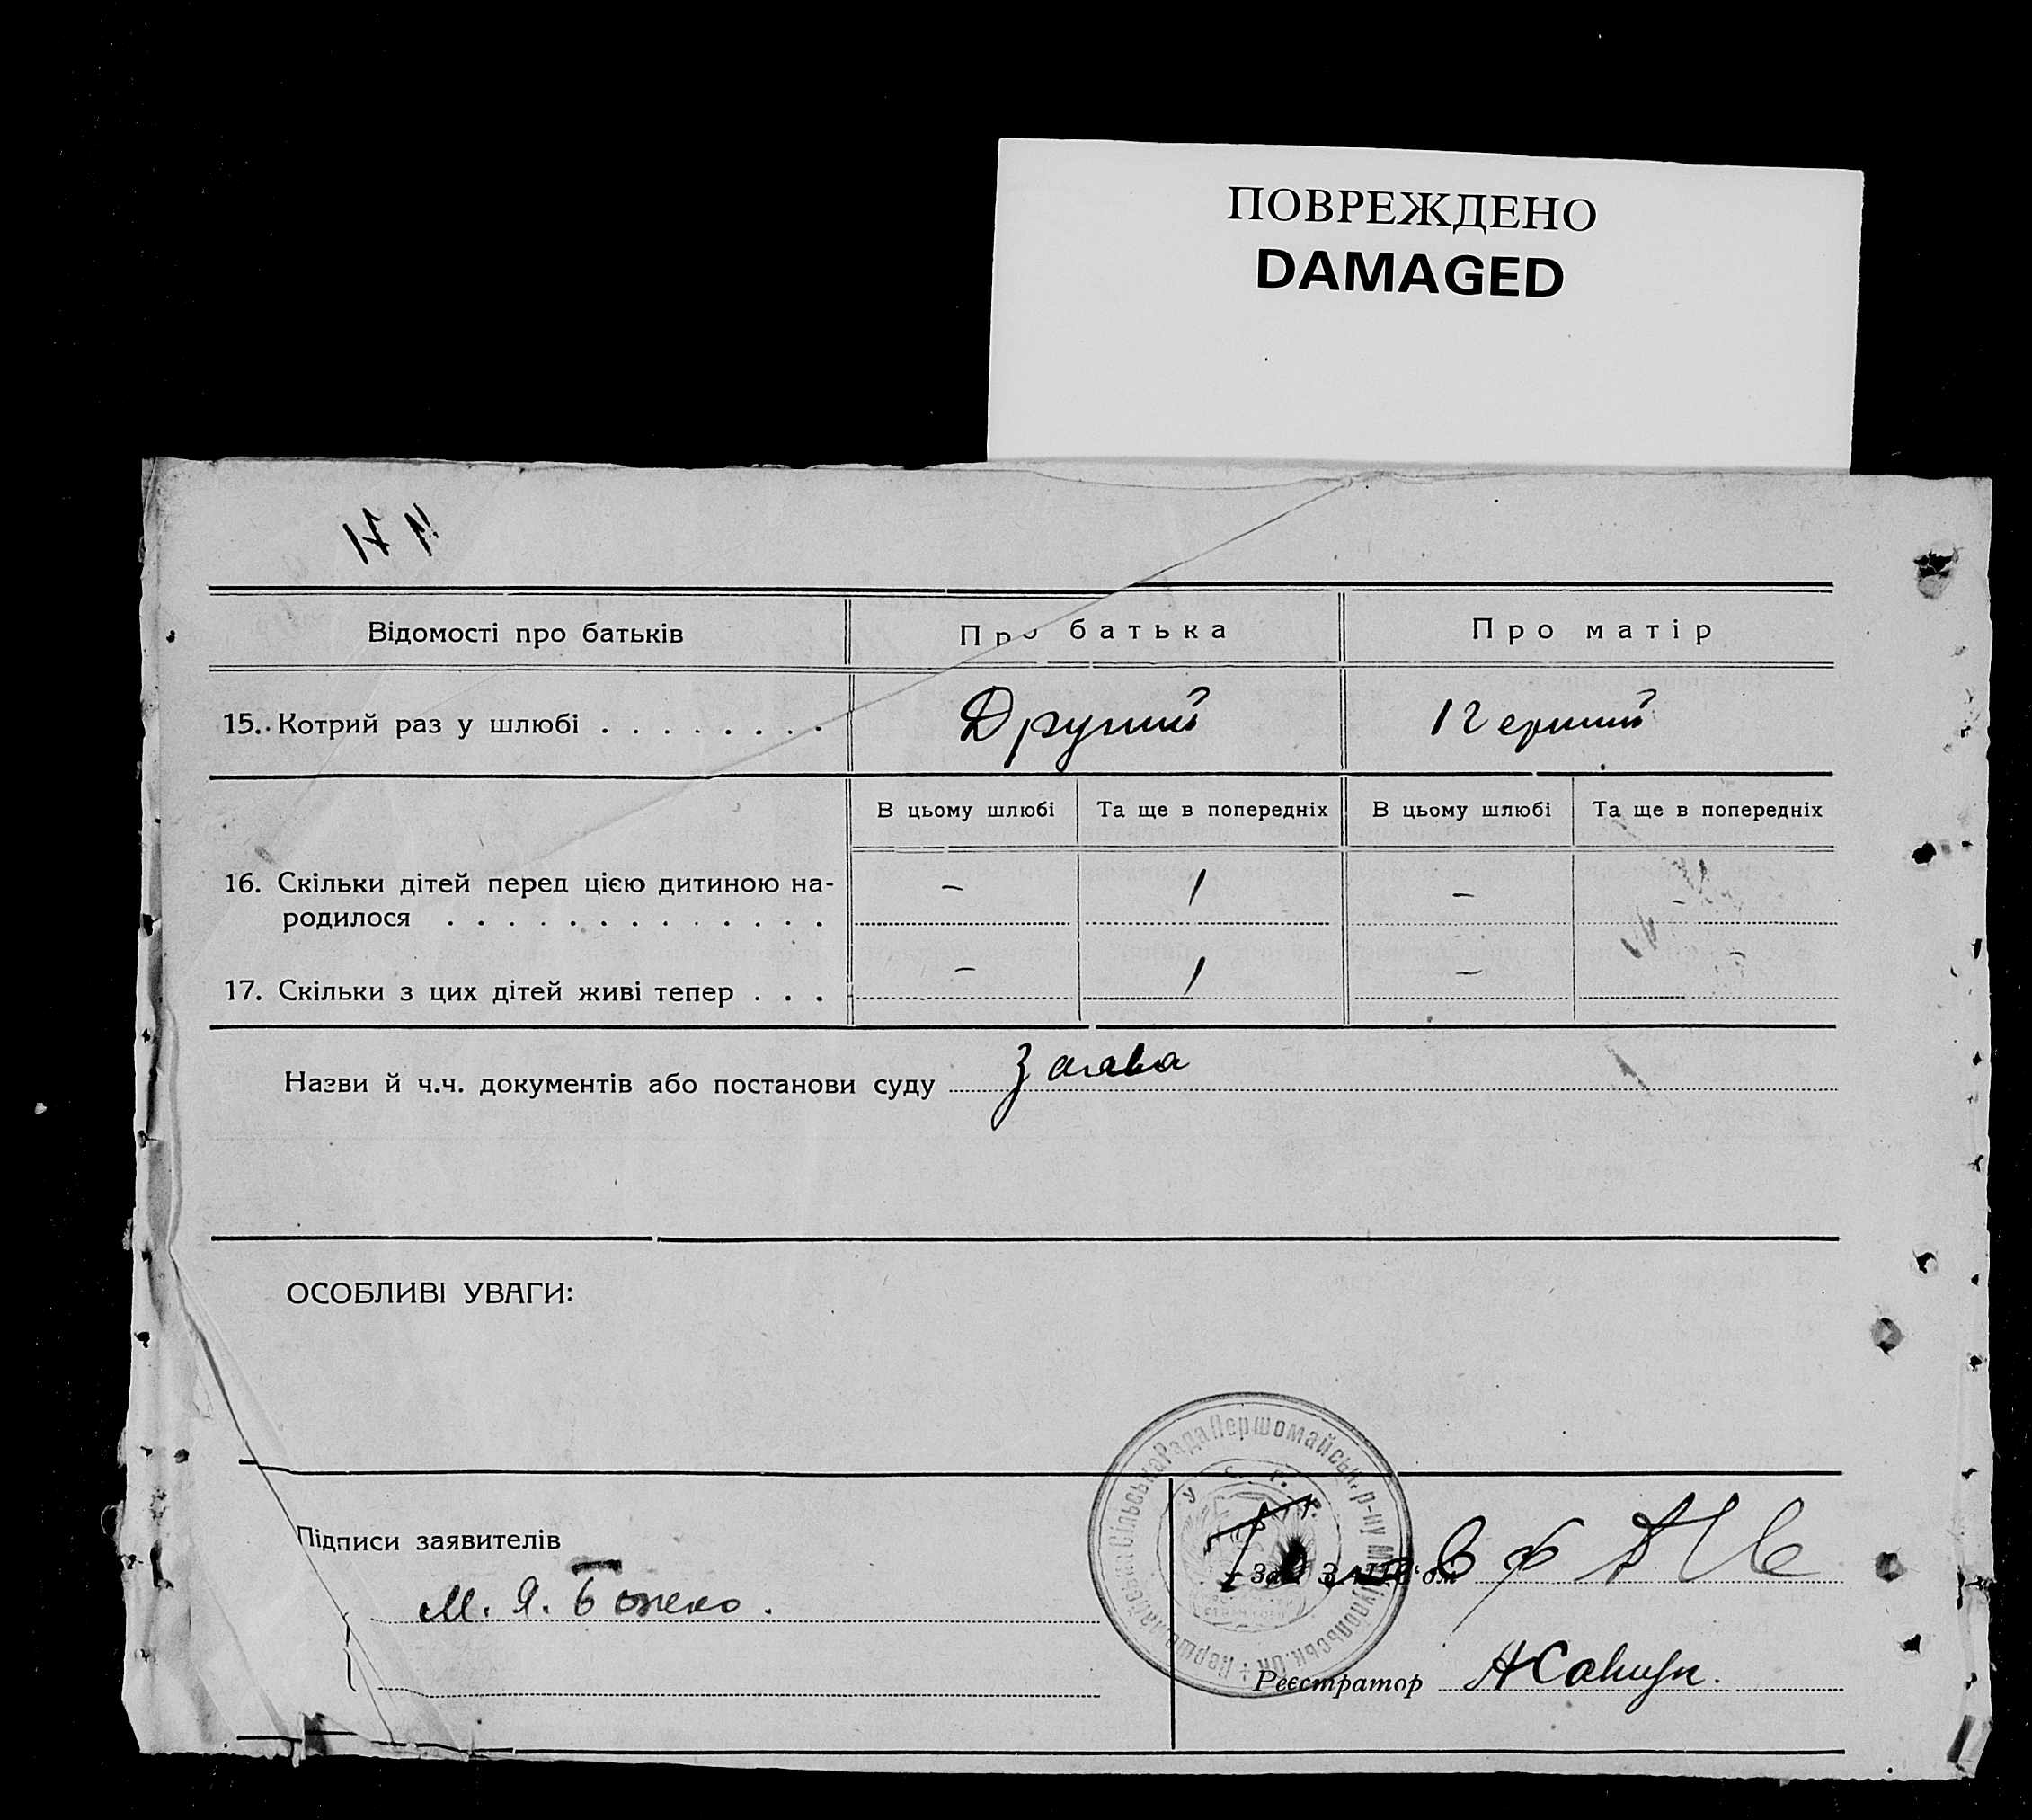 ПОВРЕЖДЕНО
DAMAGED
Відомості про батьків
Про батька
Про матір
15. Котрий раз у шлюбі . . . . . . . .
Другий
Перший
В цьому шлюбі
Та ще в попередніх
В цьому шлюбі
Та ще в попередніх
16. Скільки дітей перед цією дитиною на-
родилося . . . . . . . . . . . . .
–
1
–
–
17. Скільки з цих дітей живі тепер . . .
–
1
–
–
Назви й ч.ч. документів або постанови суду
Заява
ОСОБЛИВІ УВАГИ:
Підписи заявителів
М. Я. Божко.
Сільська Рада Першомайськ. р-ну
У. С. Р. Р.
Реєстратор